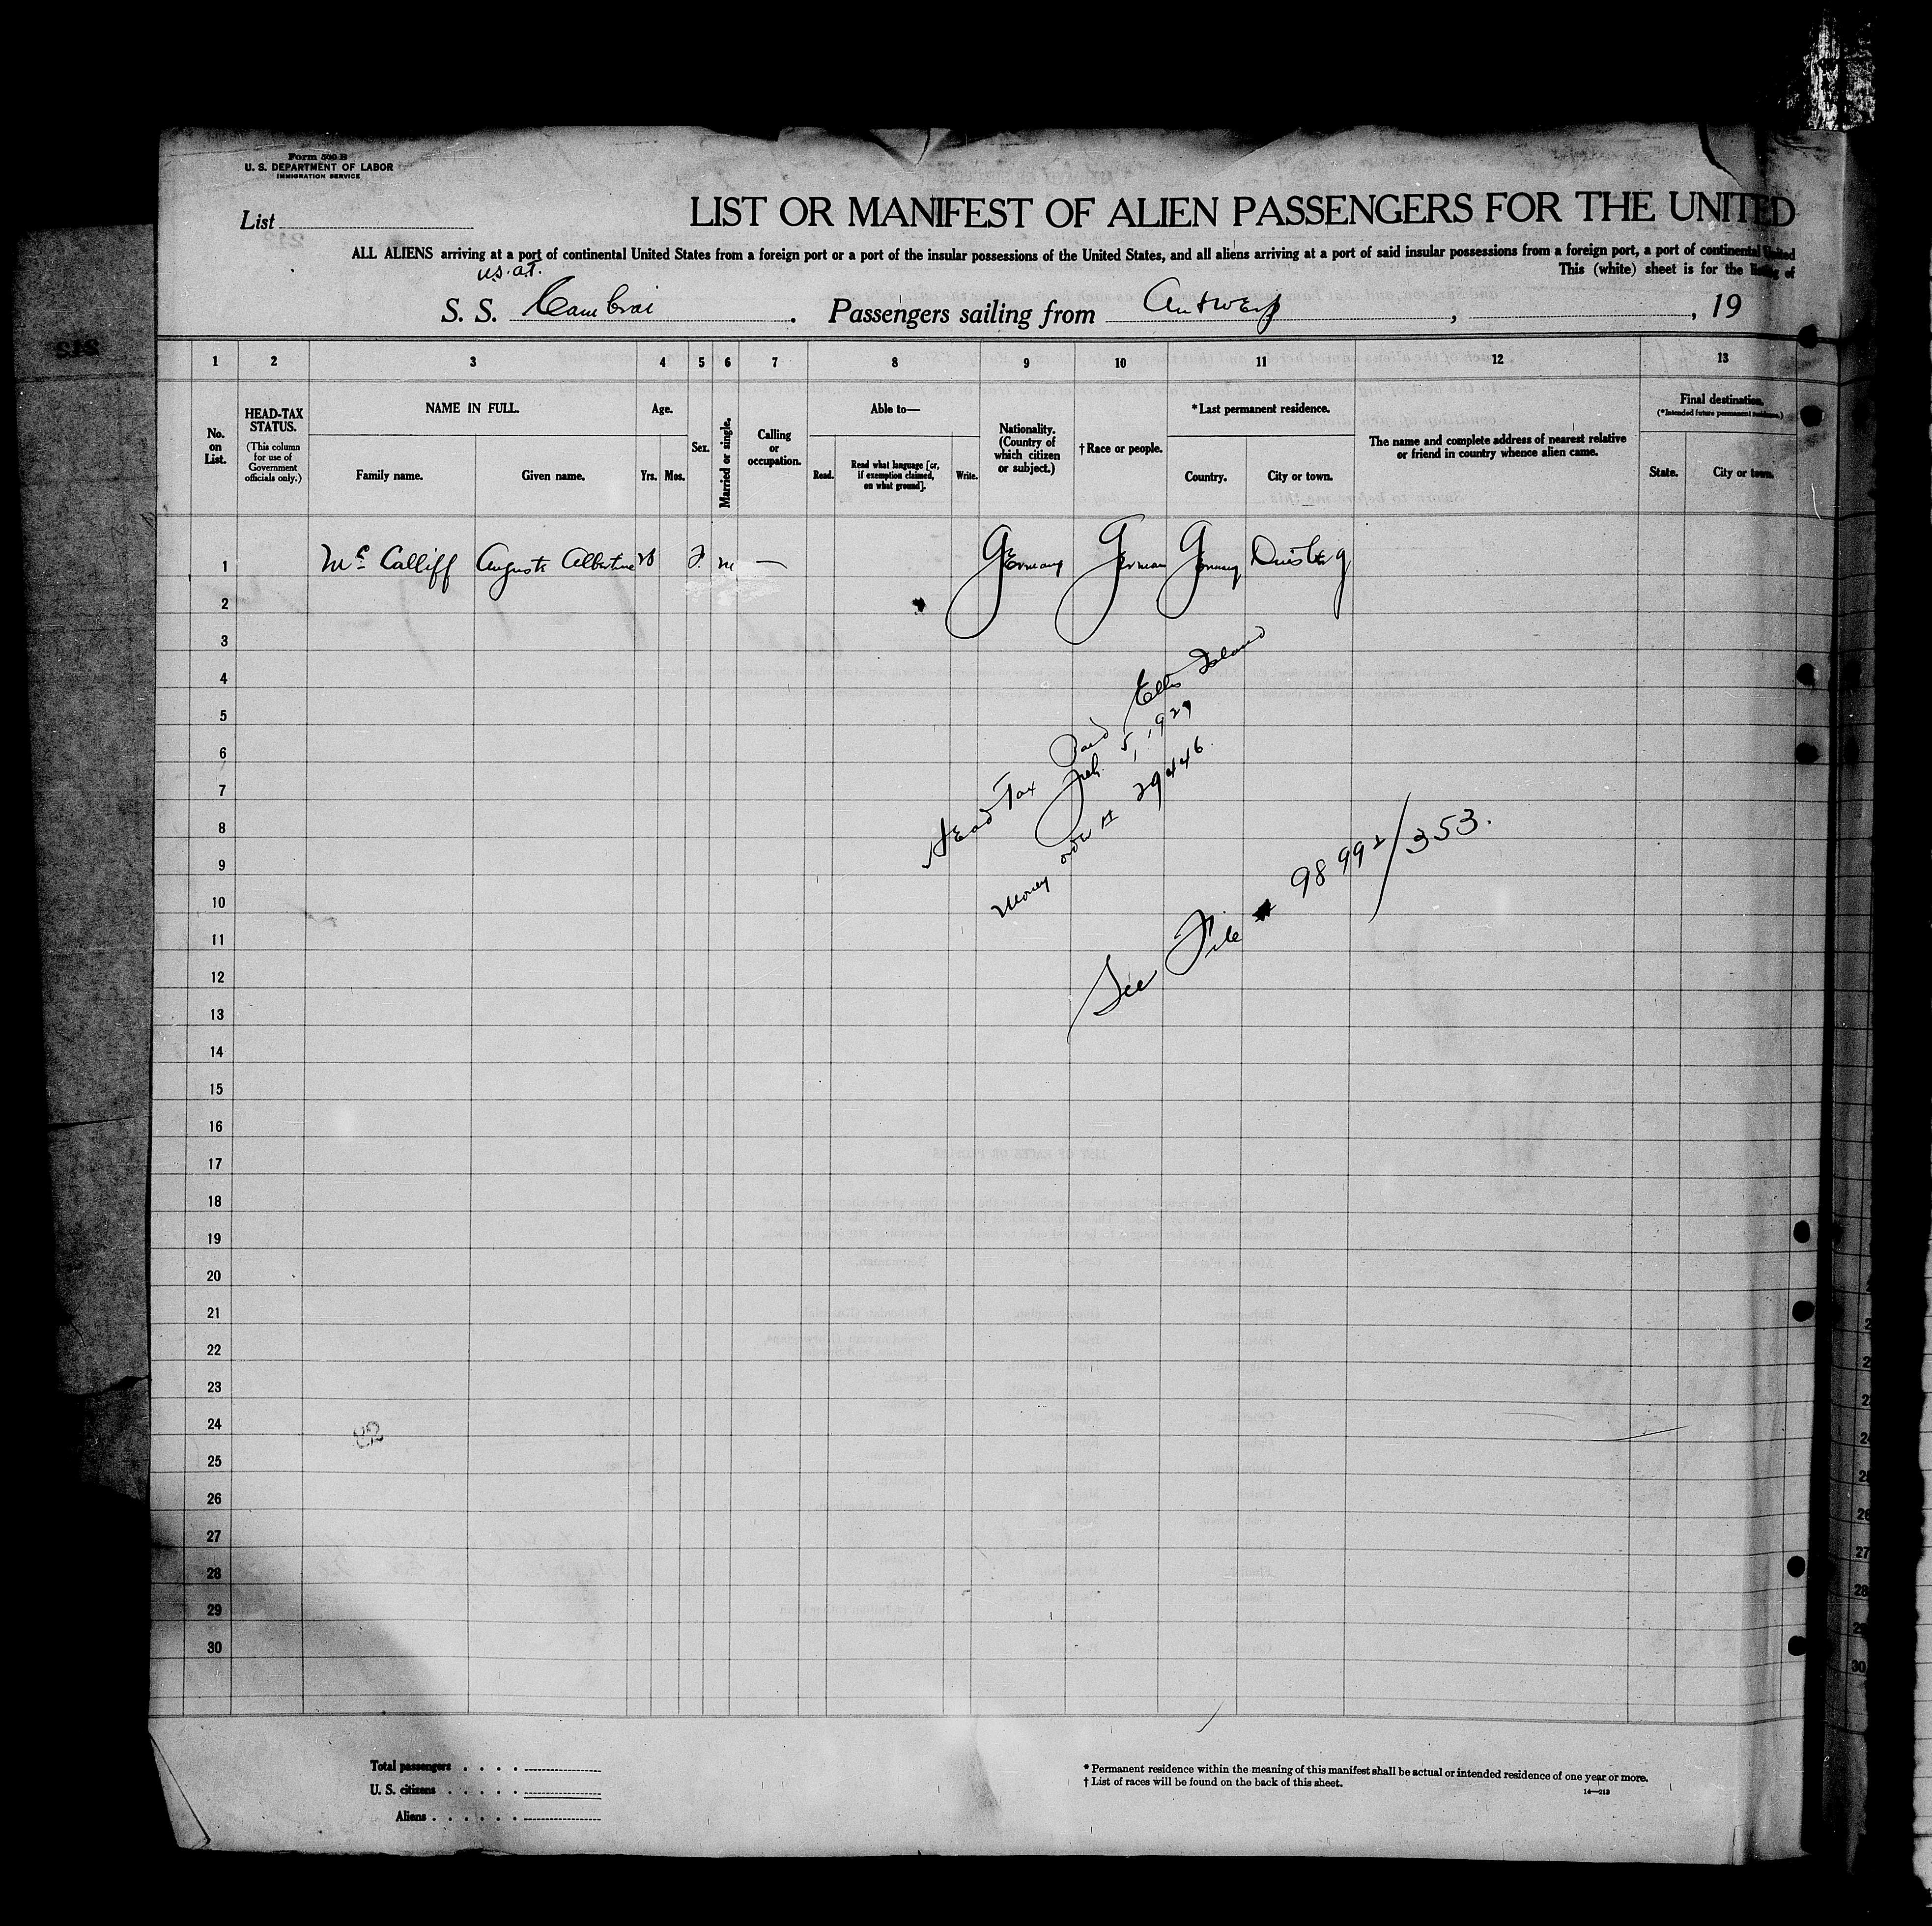 Form 500 B
U. S. DEPARTMENT OF LABOR
IMMIGRATION SERVICE
List
LIST OR MANIFEST OF ALIEN PASSENGERS FOR THE UNITED
ALL ALIENS arriving at a port of continental United States from a foreign port or a port of the insular possessions of the United States, and all aliens arriving at a port of said insular possessions from a foreign port, a port of continental United
This (white) sheet is for the listing of
U.S.A.T.
S. S. Cambrai. Passengers sailing from Antwerp, , 19
1 2 3 4 5 6 7 8 9 10 11 12 13
No. on List.
HEAD-TAX STATUS.
(This column for use of Government officials only.)
NAME IN FULL.
Family name.
Given name.
Age.
Yrs.
Mos.
Sex.
Married or single.
Calling or occupation.
Able to—
Read.
Read what language [or, if exemption claimed, on what ground].
Write.
Nationality. (Country of which citizen or subject.)
† Race or people.
* Last permanent residence.
Country.
City or town.
The name and complete address of nearest relative or friend in country whence alien came.
Final destination.
(*Intended future permanent residence.)
State.
City or town.
1 Mc Calliff Auguste Albertine F m — Germany German Germany Duisburg
2
3
4
5
6
7
8
9
10
11
12
13
14
15
16
17
18
19
20
21
22
23
24
25
26
27
28
29
30
Head Tax Paid Ellis Island
5, 192
Money order # 29446.
See File # 98992/353.
Total passengers
U. S. citizens
Aliens
* Permanent residence within the meaning of this manifest shall be actual or intended residence of one year or more.
† List of races will be found on the back of this sheet.
14—213